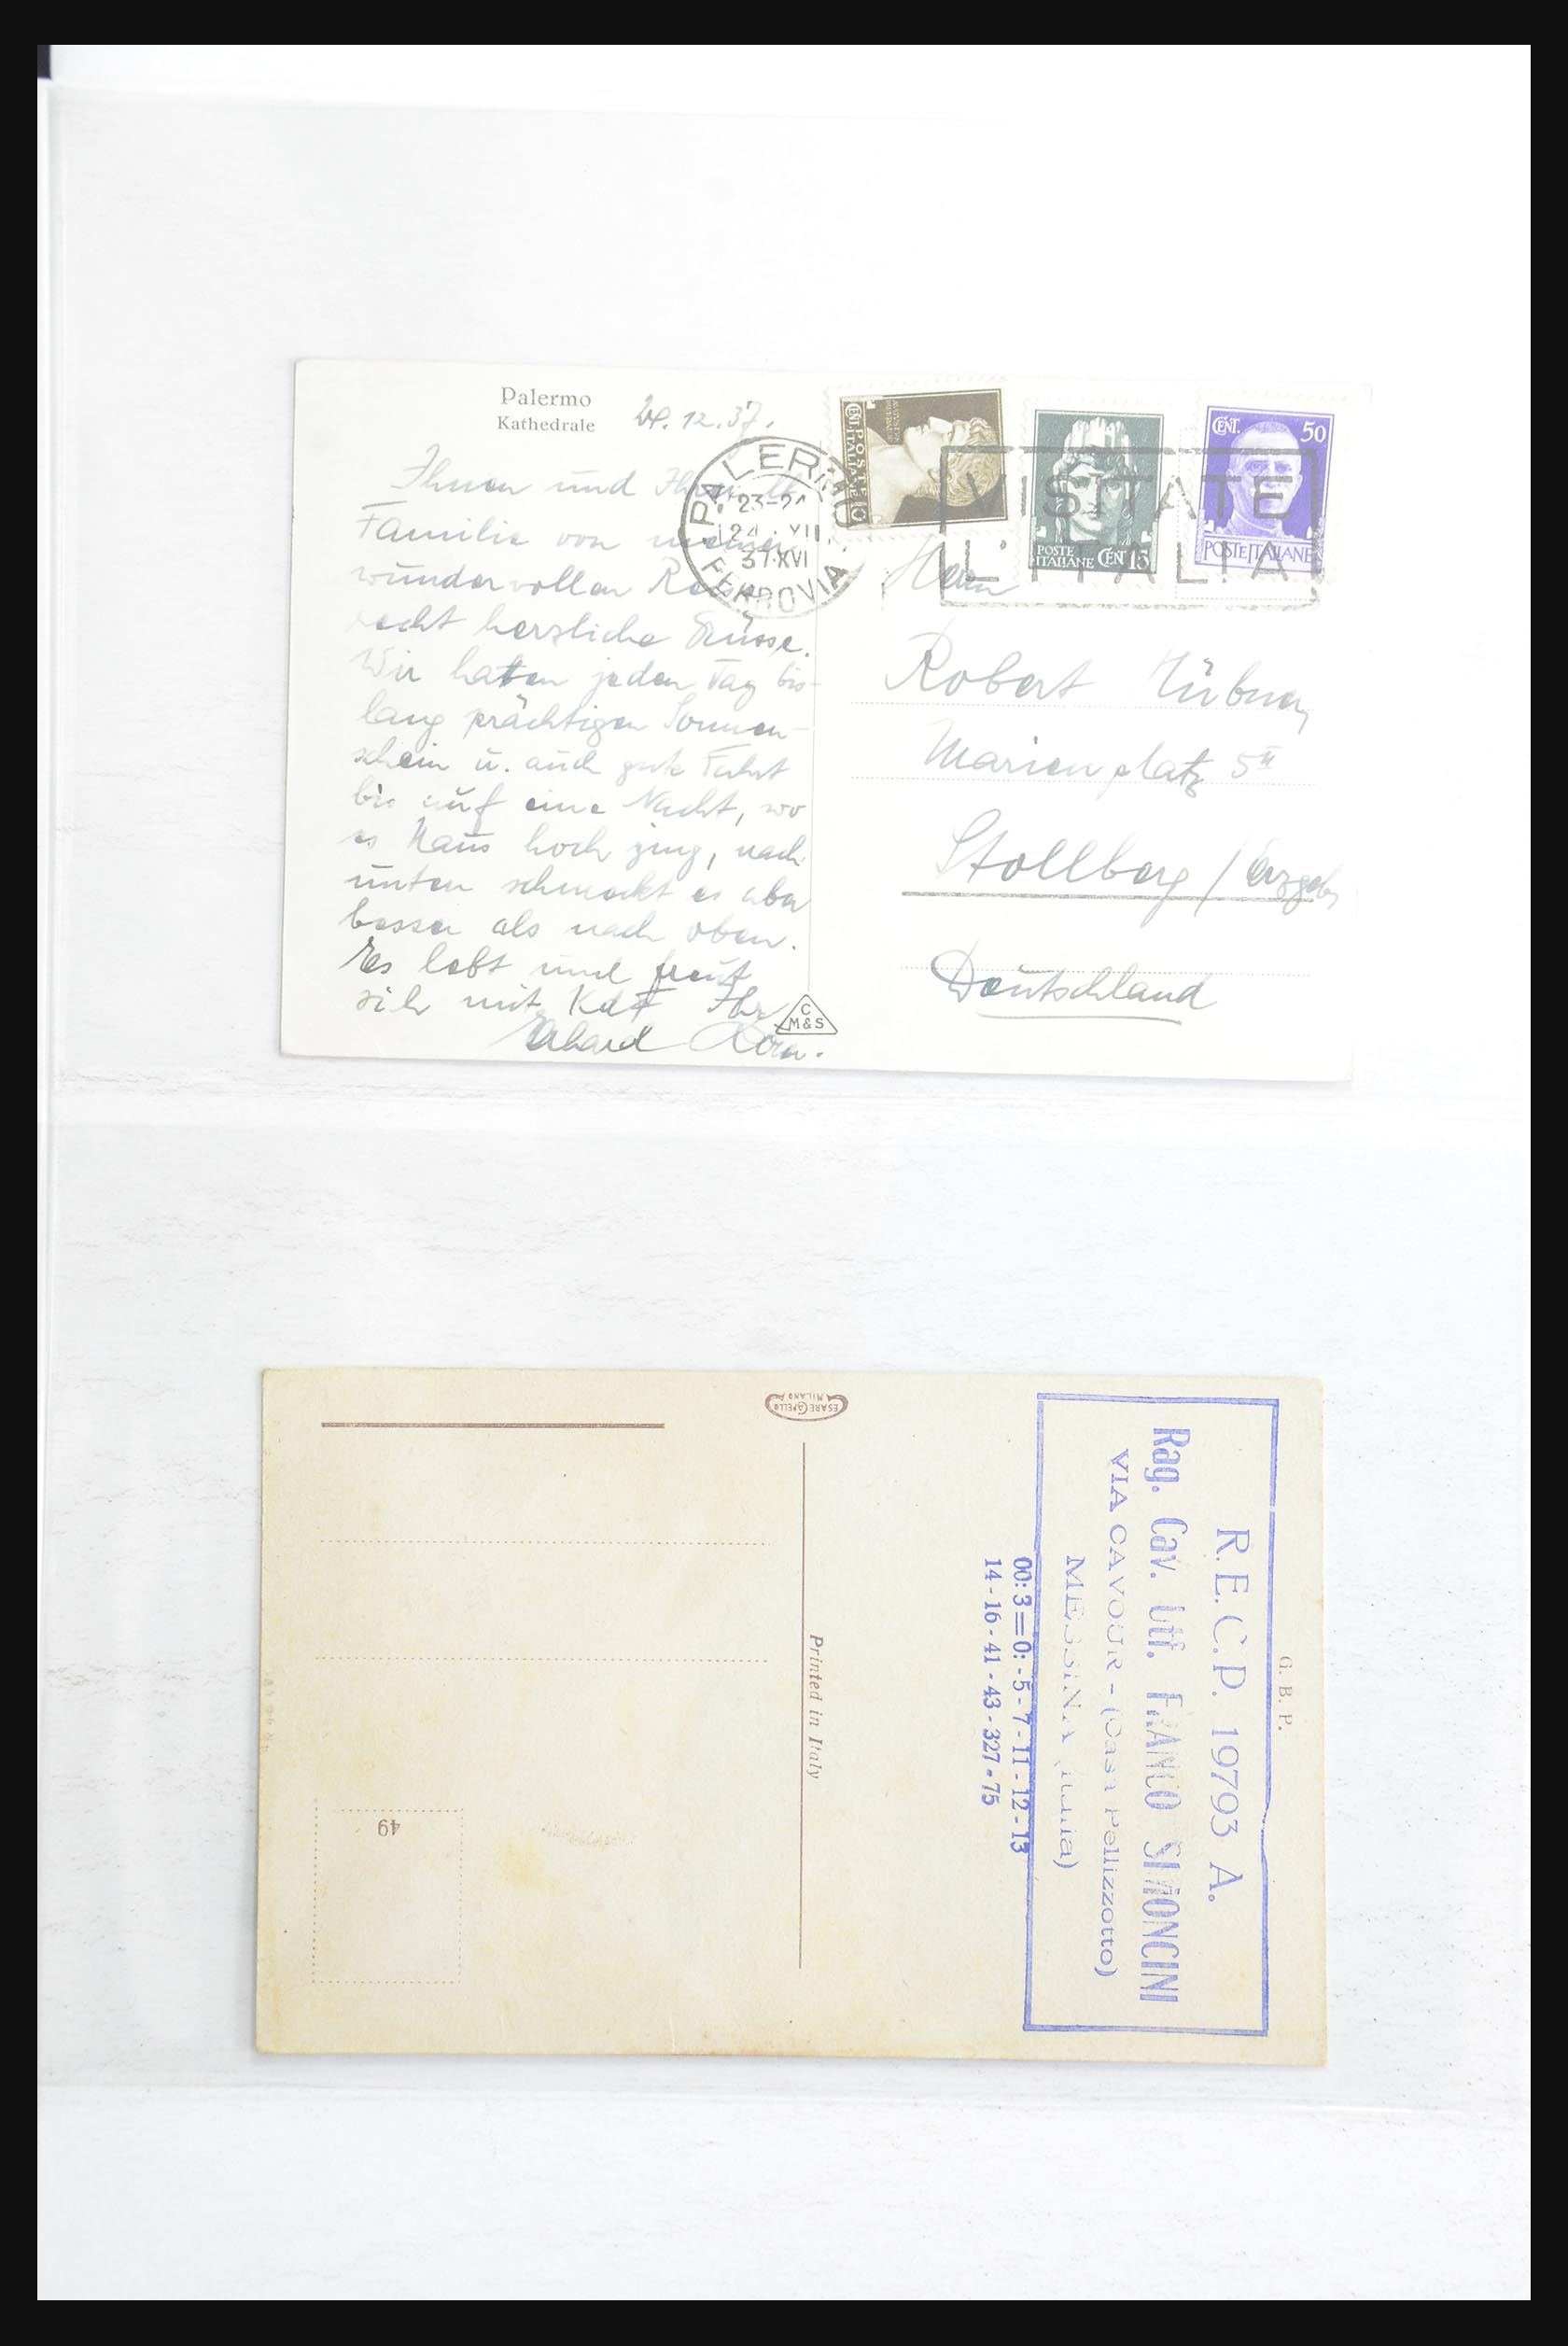 Palermo
Kathedrale
24.12.37.
Ihnen und Ihrer
Familie von meiner
wundervollen Reise
recht herzliche Grüsse.
Wir haben jeden Tag bis-
lang prächtigen Sonnen-
schein u. auch gute Fahrt
bis auf eine Nacht, wo
es Haus hoch ging, nach
unten schmeckt es aber
besser als nach oben.
Es lebt und freut
sich mit KdF Ihr
Erhard
C
M&S
PALERMO
23-24
24 XII
37·XVI
FERROVIA
POSTE
ITALIANE
CENT 10
POSTE
ITALIANE CENT 15
CENT. 50
POSTE ITALIANE
VISITATE
L'ITALIA
Herrn
Robert Hübner
Marienplatz 5II
Stollberg / Erzgeb.
Deutschland
CESARE CAPELLO
MILANO
Printed in Italy
49
G. B. P.
R.E.C.P. 19793 A.
Rag. Cav. Uff. FRANCO SIMONCINI
VIA CAVOUR - (Casa Pellizzotto)
MESSINA (Italia)
00: 3 = 0: - 5 - 7 - 11 - 12 - 13
14 - 16 - 41 - 43 - 327 - 75